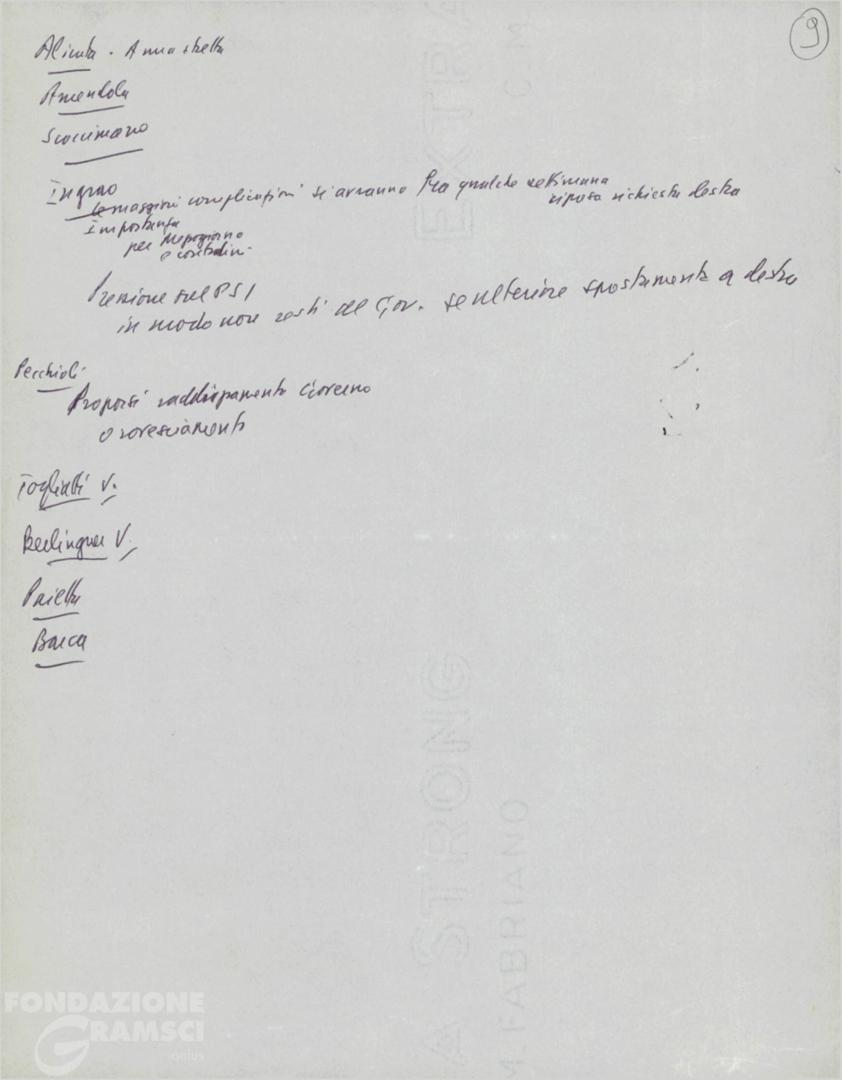 9
Alicata - 
Amendola
Scoccimarro
Ingrao
le maggiori complicazioni si avranno fra qualche settimana
ripresa richiesta destra
importanza
per Mezzogiorno
e contadini
Pressione sul PSI
in modo non resti al Gov. se ulteriore spostamento a destra
Pecchioli
Proporsi raddrizzamento Governo
o rovesciamento
Togliatti V.
Berlinguer V.
Pajetta
Barca
EXTRA
STRONG
M. FABRIANO
FONDAZIONE
GRAMSCI
onlus